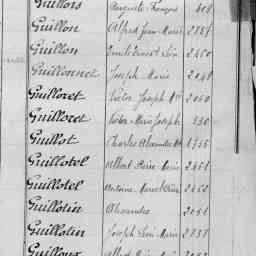 Guillois Auguste François 408
Guillon Alfred Jean Marie
Guillon Emile Ernest Léon 2450
Guillonnet Joseph Marie 2048
Guilloret Victor Joseph Mie 2050
Guilloret Victor Marie Joseph 330
Guillot Charles Alexandre
Guillotel Albert Pierre Marie 2451
Guillotel Antoine Marcel 2452
Guillotin Alexandre 2051
Guillotin Joseph Léon Marie
Guilloux Albert